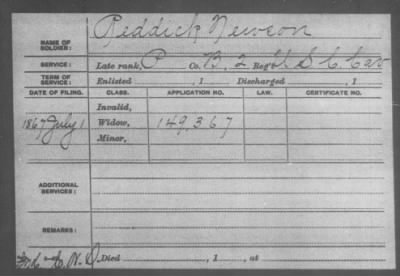 NAME OF SOLDIER: Reddick Newson
SERVICE: Late rank, P Co. B, 2 Reg't U S C Cav
TERM OF SERVICE: Enlisted , 1 Discharged , 1
DATE OF FILING. CLASS. APPLICATION NO. LAW. CERTIFICATE NO.
Invalid,
1867 July 1 Widow, 149,367
Minor,
ADDITIONAL SERVICES:
REMARKS:
Died , 1 , at